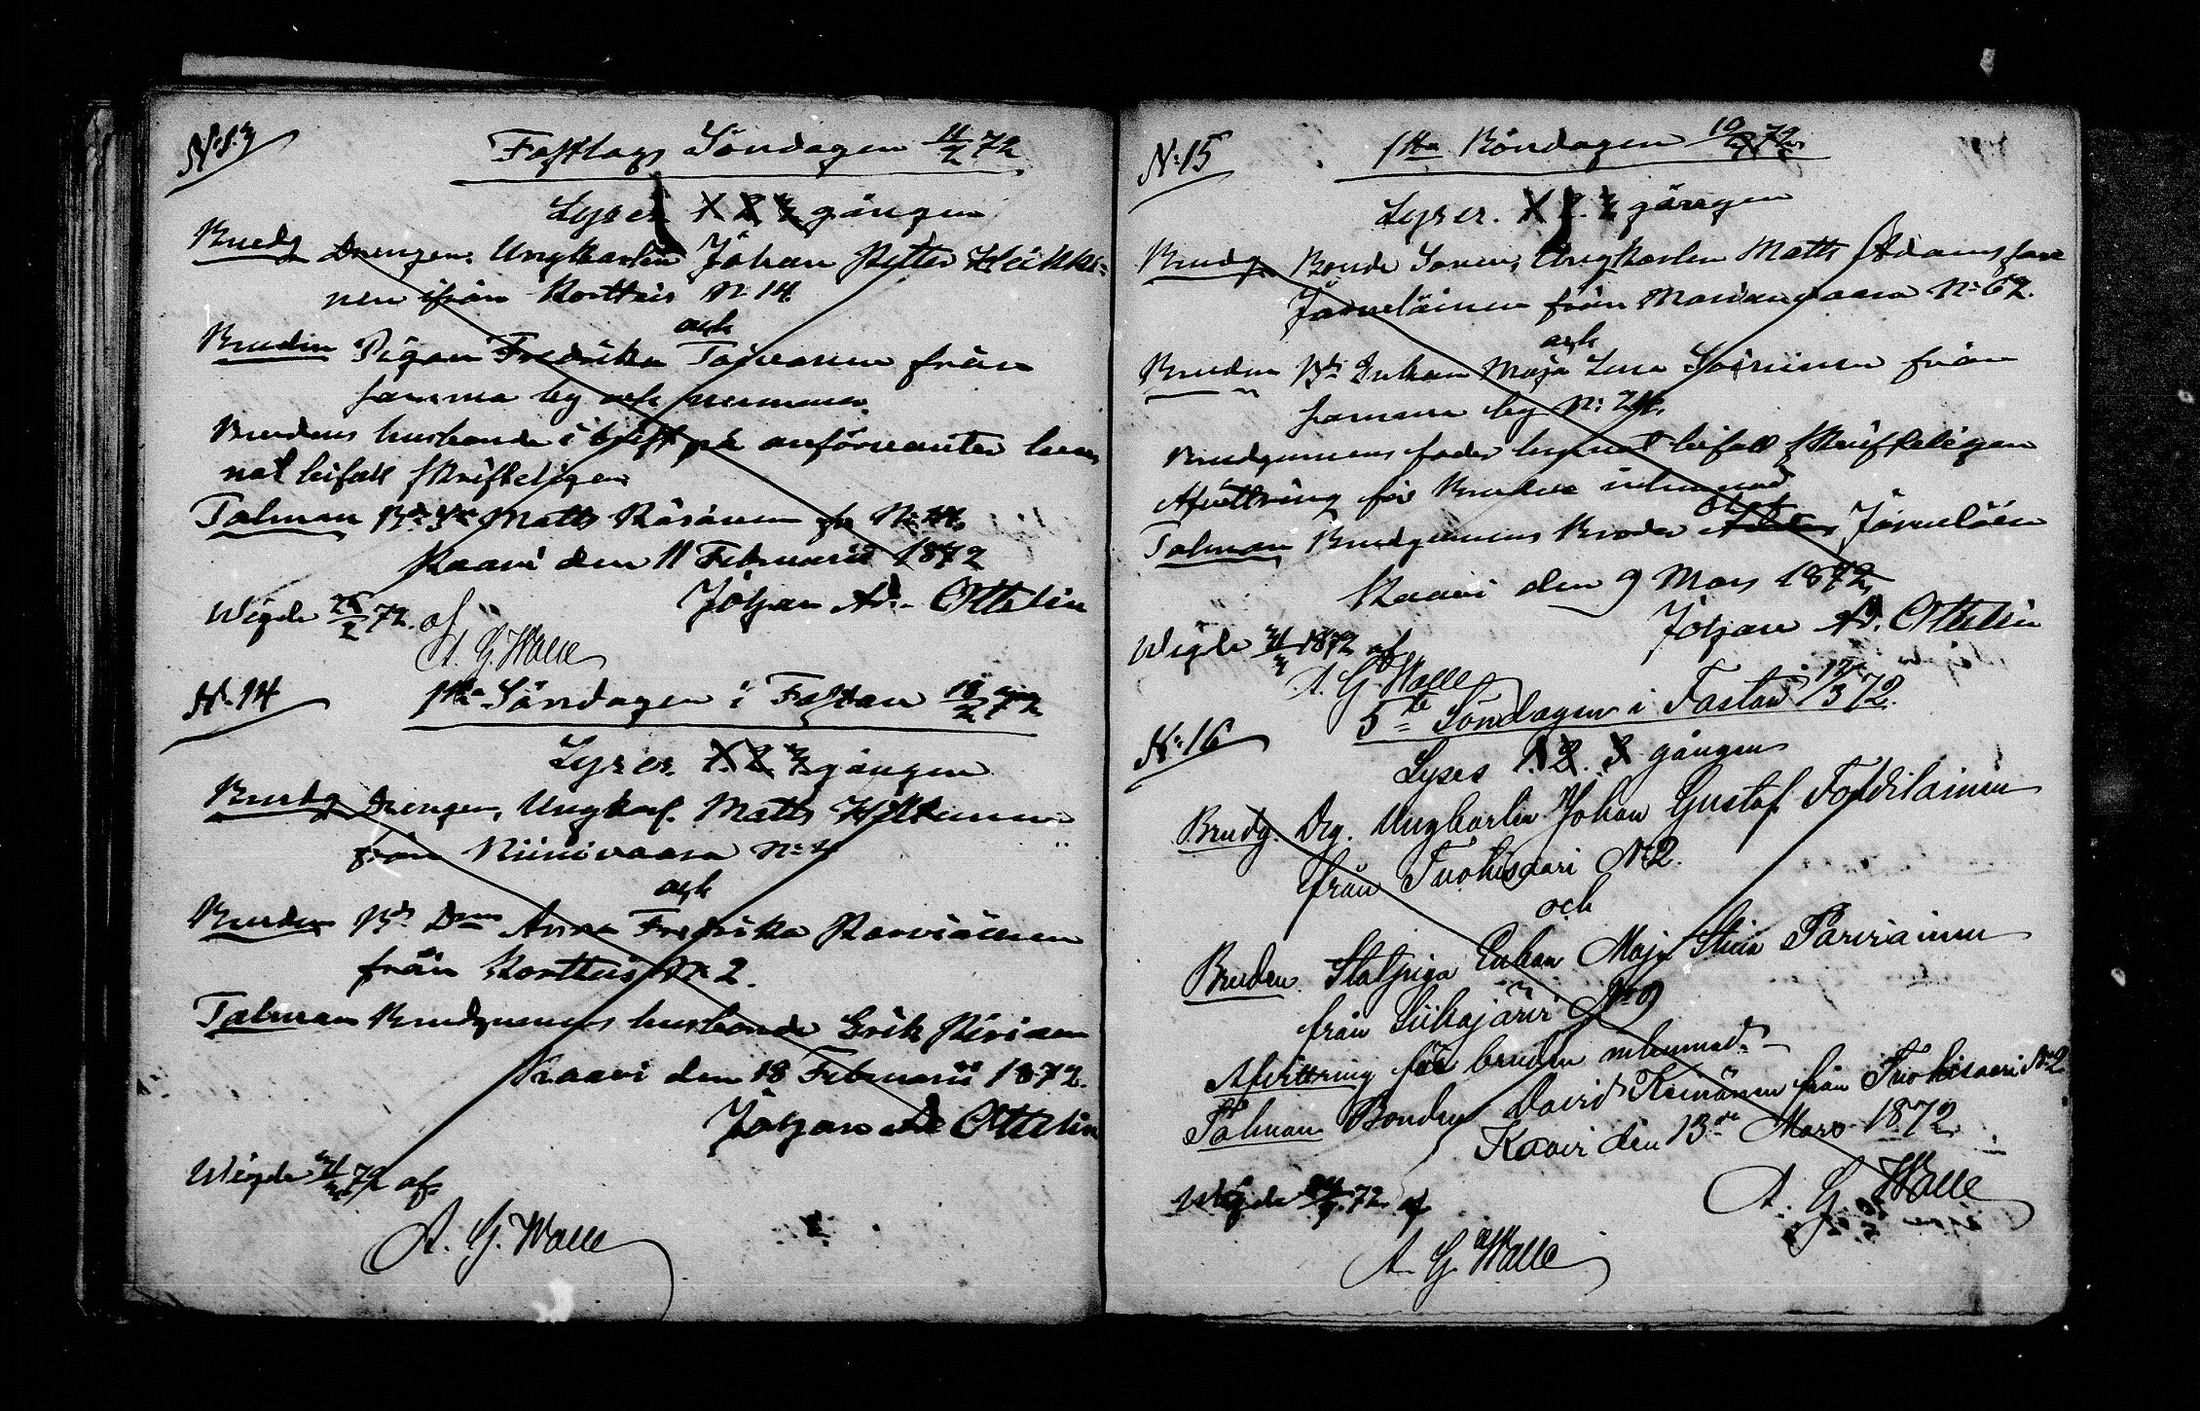 N:13
Fastlags Söndagen 11/2 72
Lyses 1. 2. 3. gången
Brudg Drengen, Ungkarlen Johan Petter Heikki-
nen ifrån Kortteis N 14
och
Bruden Pigan Fredrika Toivanen från
samma by och nummer.
Brudens husbonde i
nat bifall skrifteligen
Talman Matts Räsänen
Kaavi den 11 Februarii 1872
Johan Ad. Ottelin
Wigde 25/2 72. af
A. G. Walle
N. 14
1sta Söndagen i Fastan 18/2 72
Lyses. 1. 2. 3. gången
Brudg Drengen, Ungkarl. Matts
från Niinivaara N:
och
Bruden Bd Dm Anna Fredrika
från Kortteis N 2.
Talman Brudgumens husbonde Erik
Kaavi den 18 Februarii 1872.
Johan Ad Ottelin
Wigde 72 af
A. G. Walle
N:15
1sta Böndagen 10/3 72
Lyses. 1. 2. 3. gången
Brudg. Bonde Sonen, Ungkarlen Matts Adamsson
Järveläinen från Marianvaara N:
och
Bruden Bd Enkan Maja Lena från
samma by N: 24.
Brudgumens fader lemnat bifall skrifteligen
Afvittring för Bruden inlemnad
Talman Brudgumens Broder Järveläin
Kaavi den 9 Mars 1872
Johan Ad. Ottelin
Wigde 1872 af
A. G. Walle
N:16
5te Söndagen i Fastan 17/3 72.
Lyses 1. 2. 3 gången
Brudg. Drg. Ungkarlen Johan Gustaf
från Tuohisaari N 2.
och
Bruden. Statpiga Enkan Maja Stina Parviainen
från Siikajärvi N:o 9
Afvittring för bruden inlemnad.
Talman Bonden David från Tuohisaari N:2
Kaavi den 13de Mars 1872
A. G. Walle
Wigde 72. af
A. G. Walle